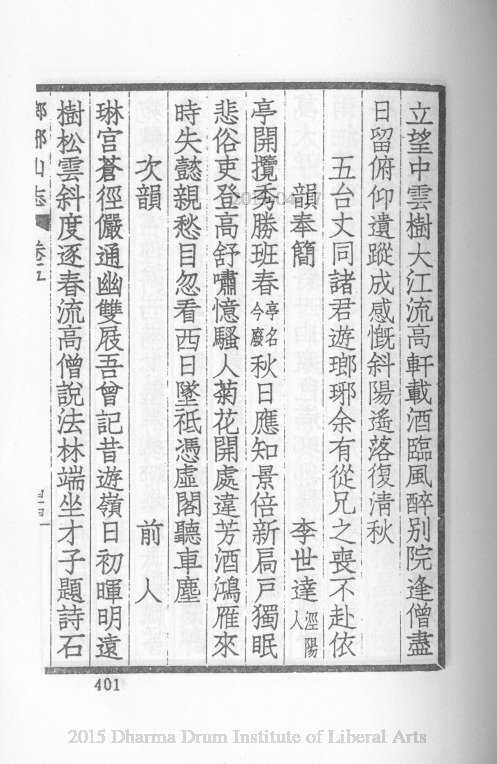 立望中雲樹大江流高軒載酒臨風醉別院逢僧盡
日留俯仰遺蹤成感慨斜陽遙落復清秋
五台丈同諸君遊瑯琊余有從兄之喪不赴依
韻奉簡 李世達涇陽人
亭開攬秀勝班春亭名今廢秋日應知景倍新扃戸獨眠
悲俗吏登高舒嘯憶騷人菊花開處違芳酒鴻雁來
時失懿親愁目忽看西日墜祗憑虛閣聽車塵
次韻 前人
琳宫蒼徑儼通幽雙屐吾曾記昔遊嶺日初暉明遠
樹松雲斜度逐春流高僧說法林端坐才子題詩石
瑯琊山志 卷五
401
2015 Dharma Drum Institute of Liberal Arts